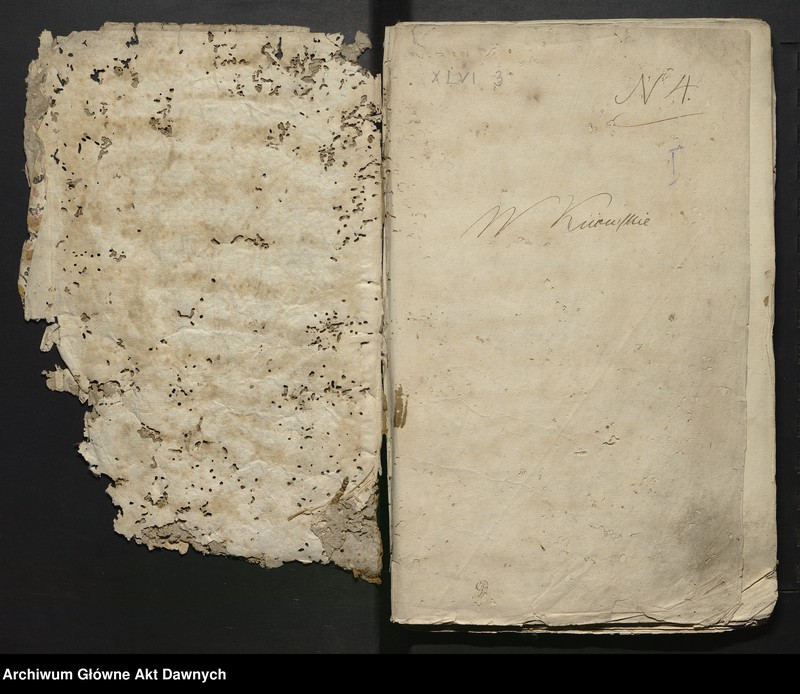 XLVI 3
Nº 4.
I
W Kiiowskie
Archiwum Główne Akt Dawnych